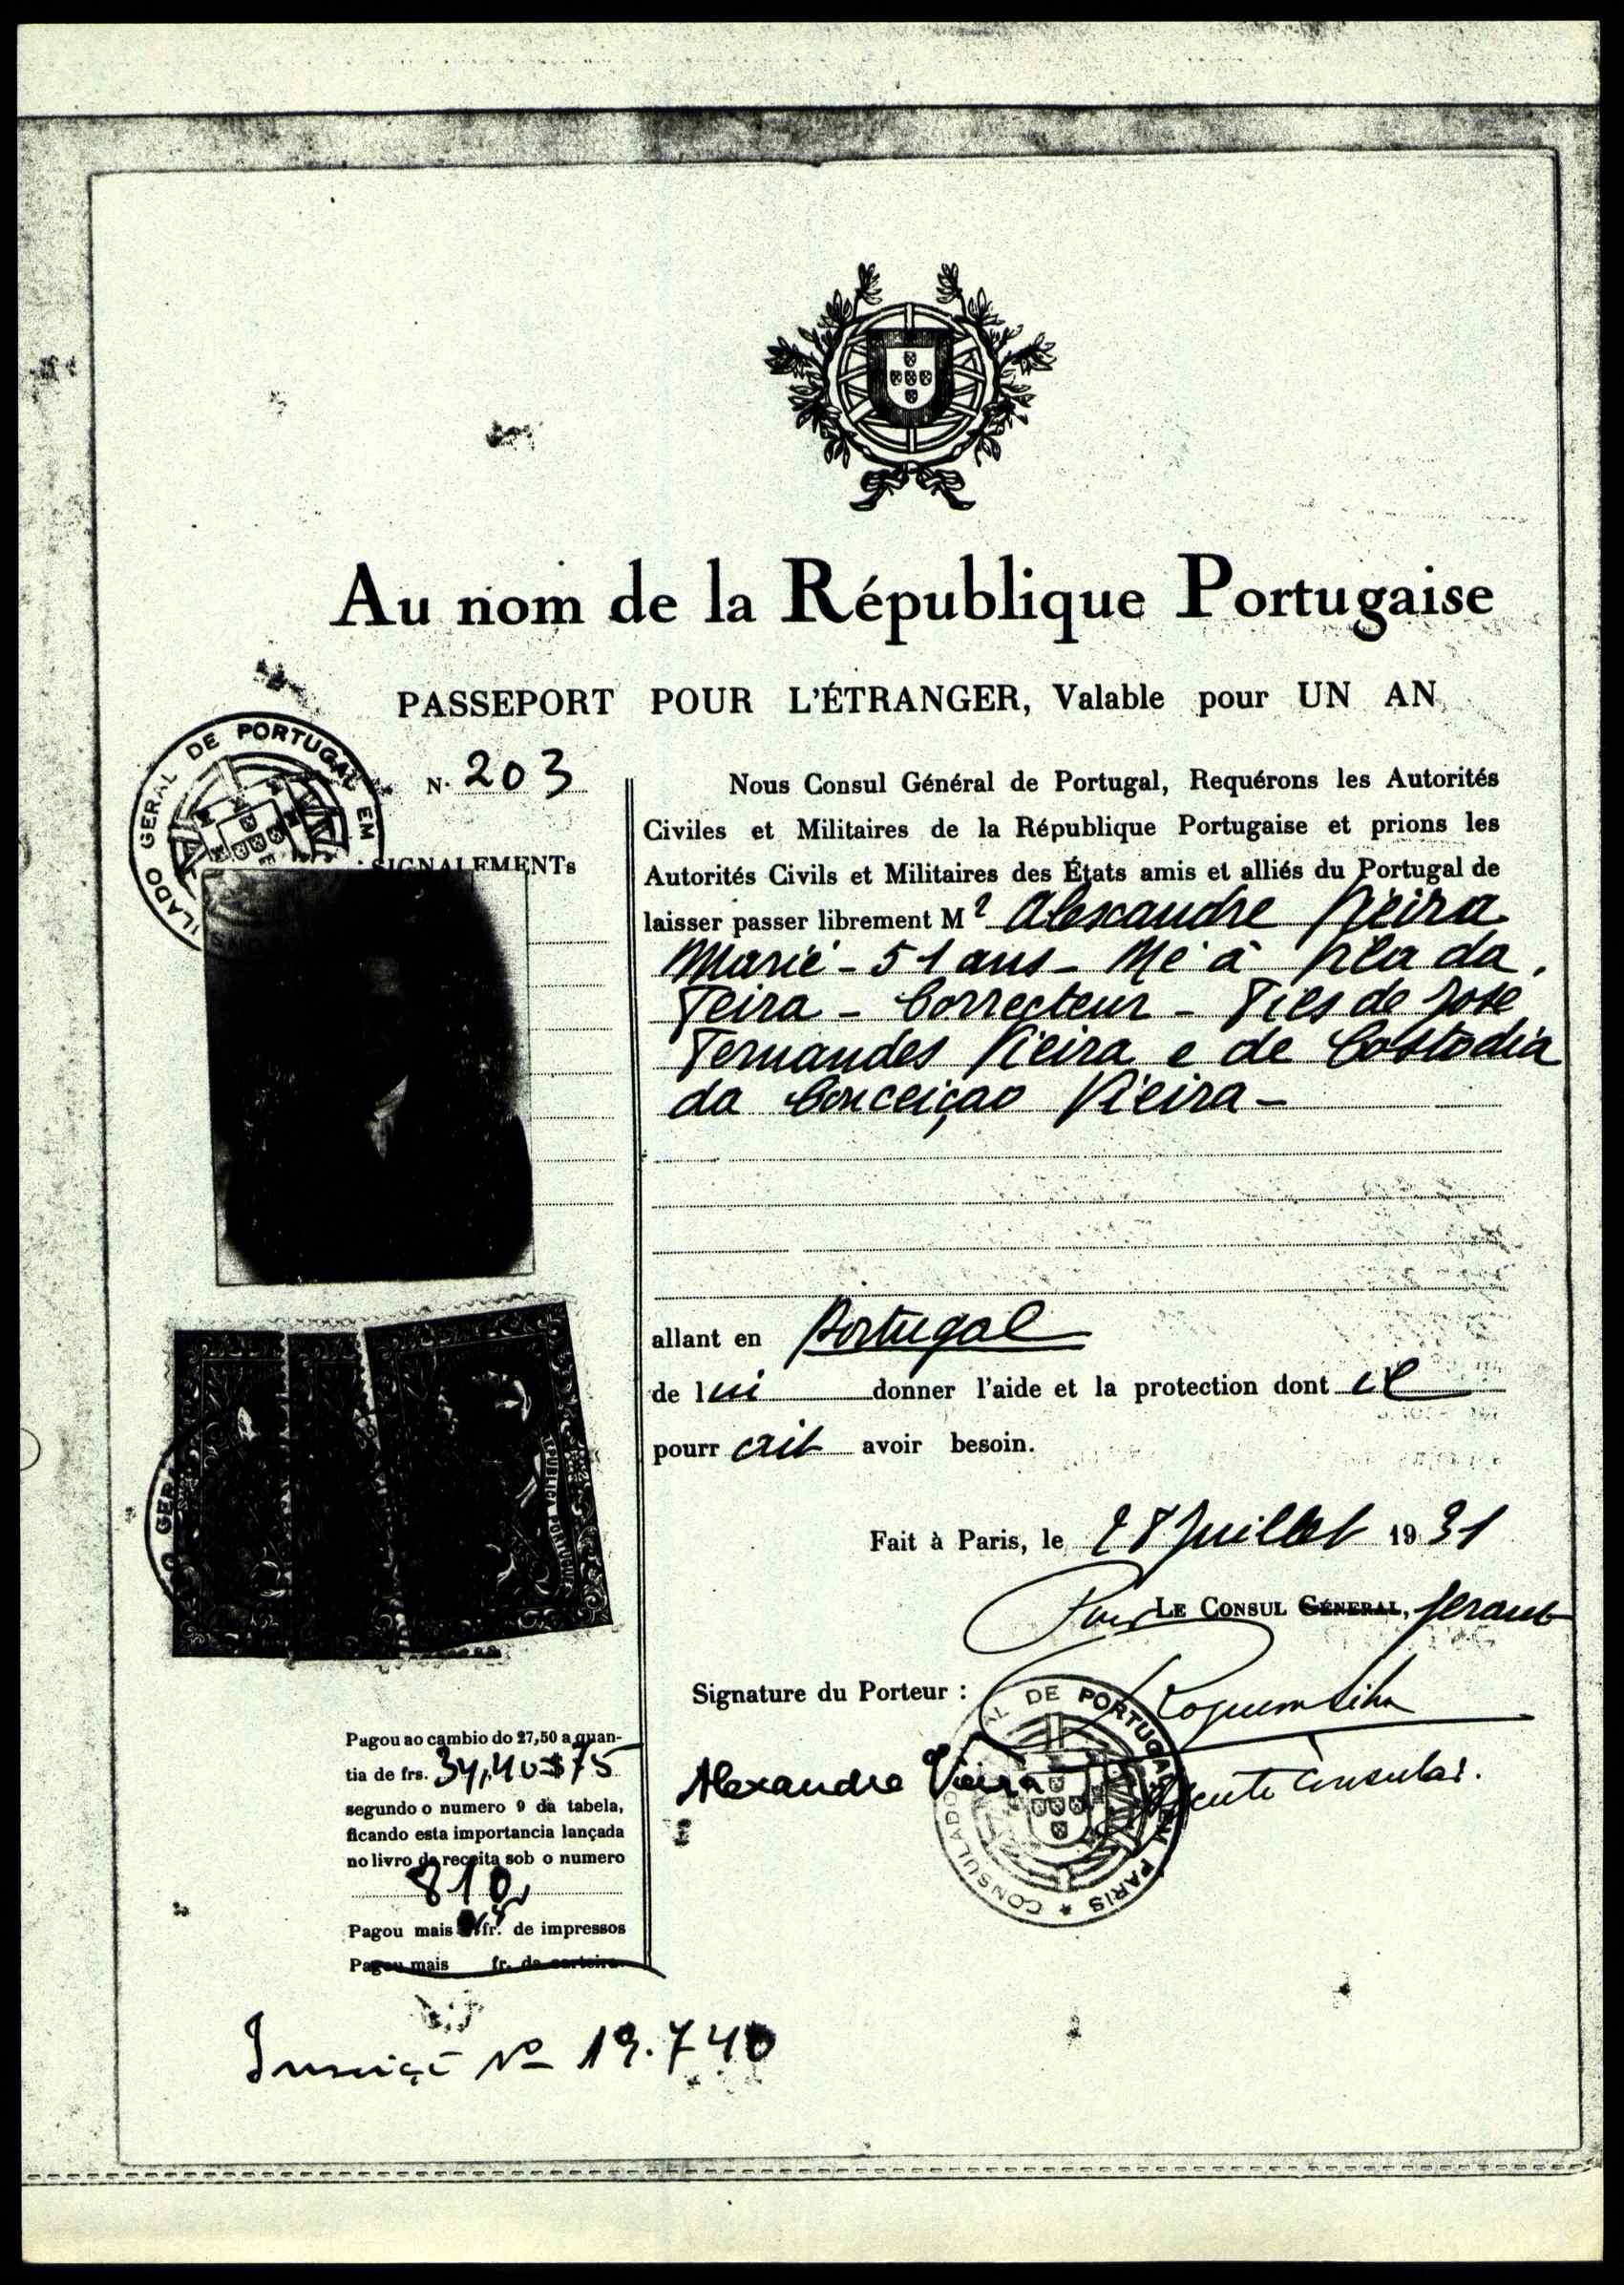 Au nom de la République Portugaise
PASSEPORT POUR L'ÉTRANGER, Valable pour UN AN
N. 203
ULADO GERAL DE PORTUGAL EM
SIGNALEMENTs
Nous Consul Général de Portugal, Requérons les Autorités
Civiles et Militaires de la République Portugaise et prions les
Autorités Civils et Militaires des États amis et alliés du Portugal de
laisser passer librement Mr Alexandre Vieira
Marié - 51 ans - Né à Vila da
Feira - Correcteur - Fils de José
Fernandes Vieira e de Costodia
da Conceiçao Vieira -
allant en Portugal
de lui donner l'aide et la protection dont il
pourr ait avoir besoin.
Fait à Paris, le 28 Juillet 1931
Pour LE CONSUL GÉNERAL, Gerant
Signature du Porteur :
Alexandre Vieira
Consular.
CONSULADO GERAL DE PORTUGAL EM PARIS
REPUBLICA PORTUGUESA
GER
Pagou ao cambio do 27,50 a quan-
tia de frs. 34,40 $75
segundo o numero 9 da tabela,
ficando esta importancia lançada
no livro de receita sob o numero
810
Pagou mais fr. de impressos
Pagou mais fr. da carteira.
Nº 19.740